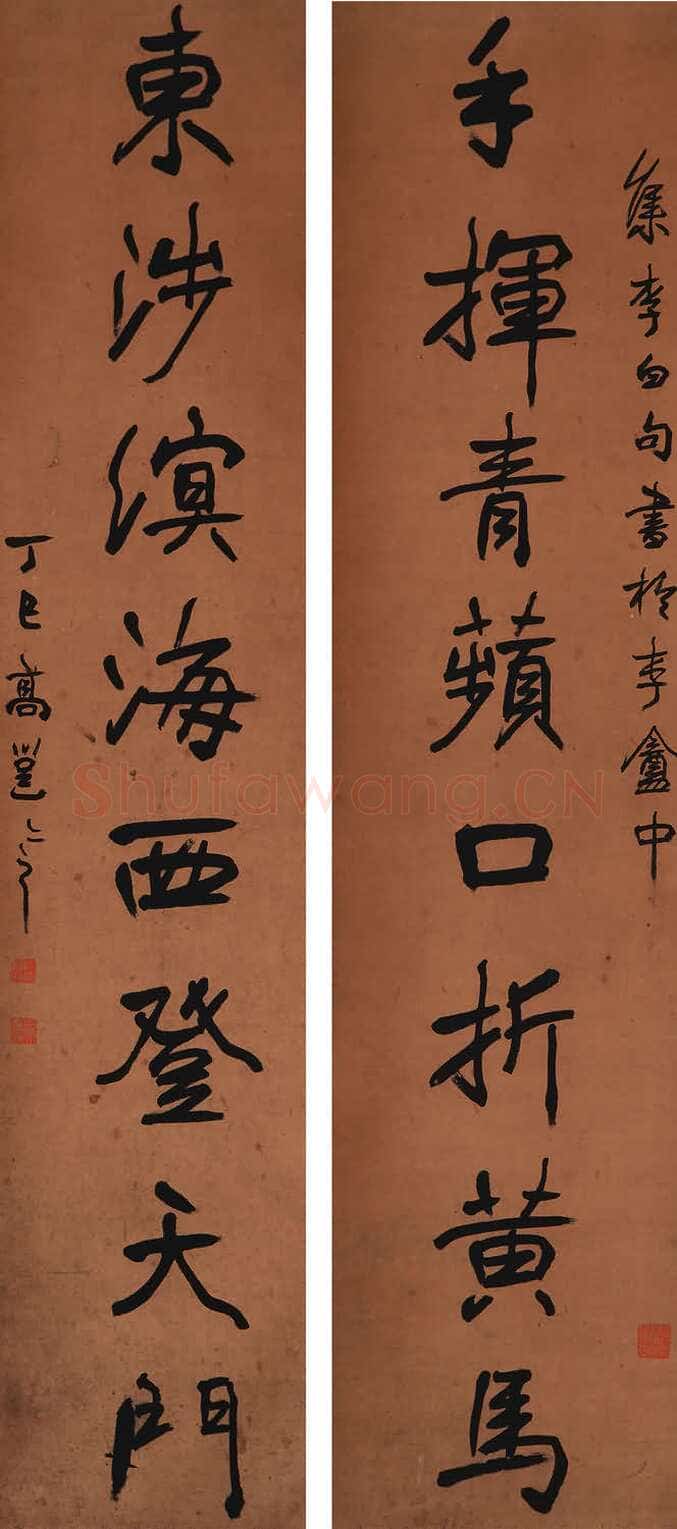 集李白句書於李盦中
手揮青蘋口折黄馬
東涉溟海西登天門
丁巳高邕之
Shufawang.CN